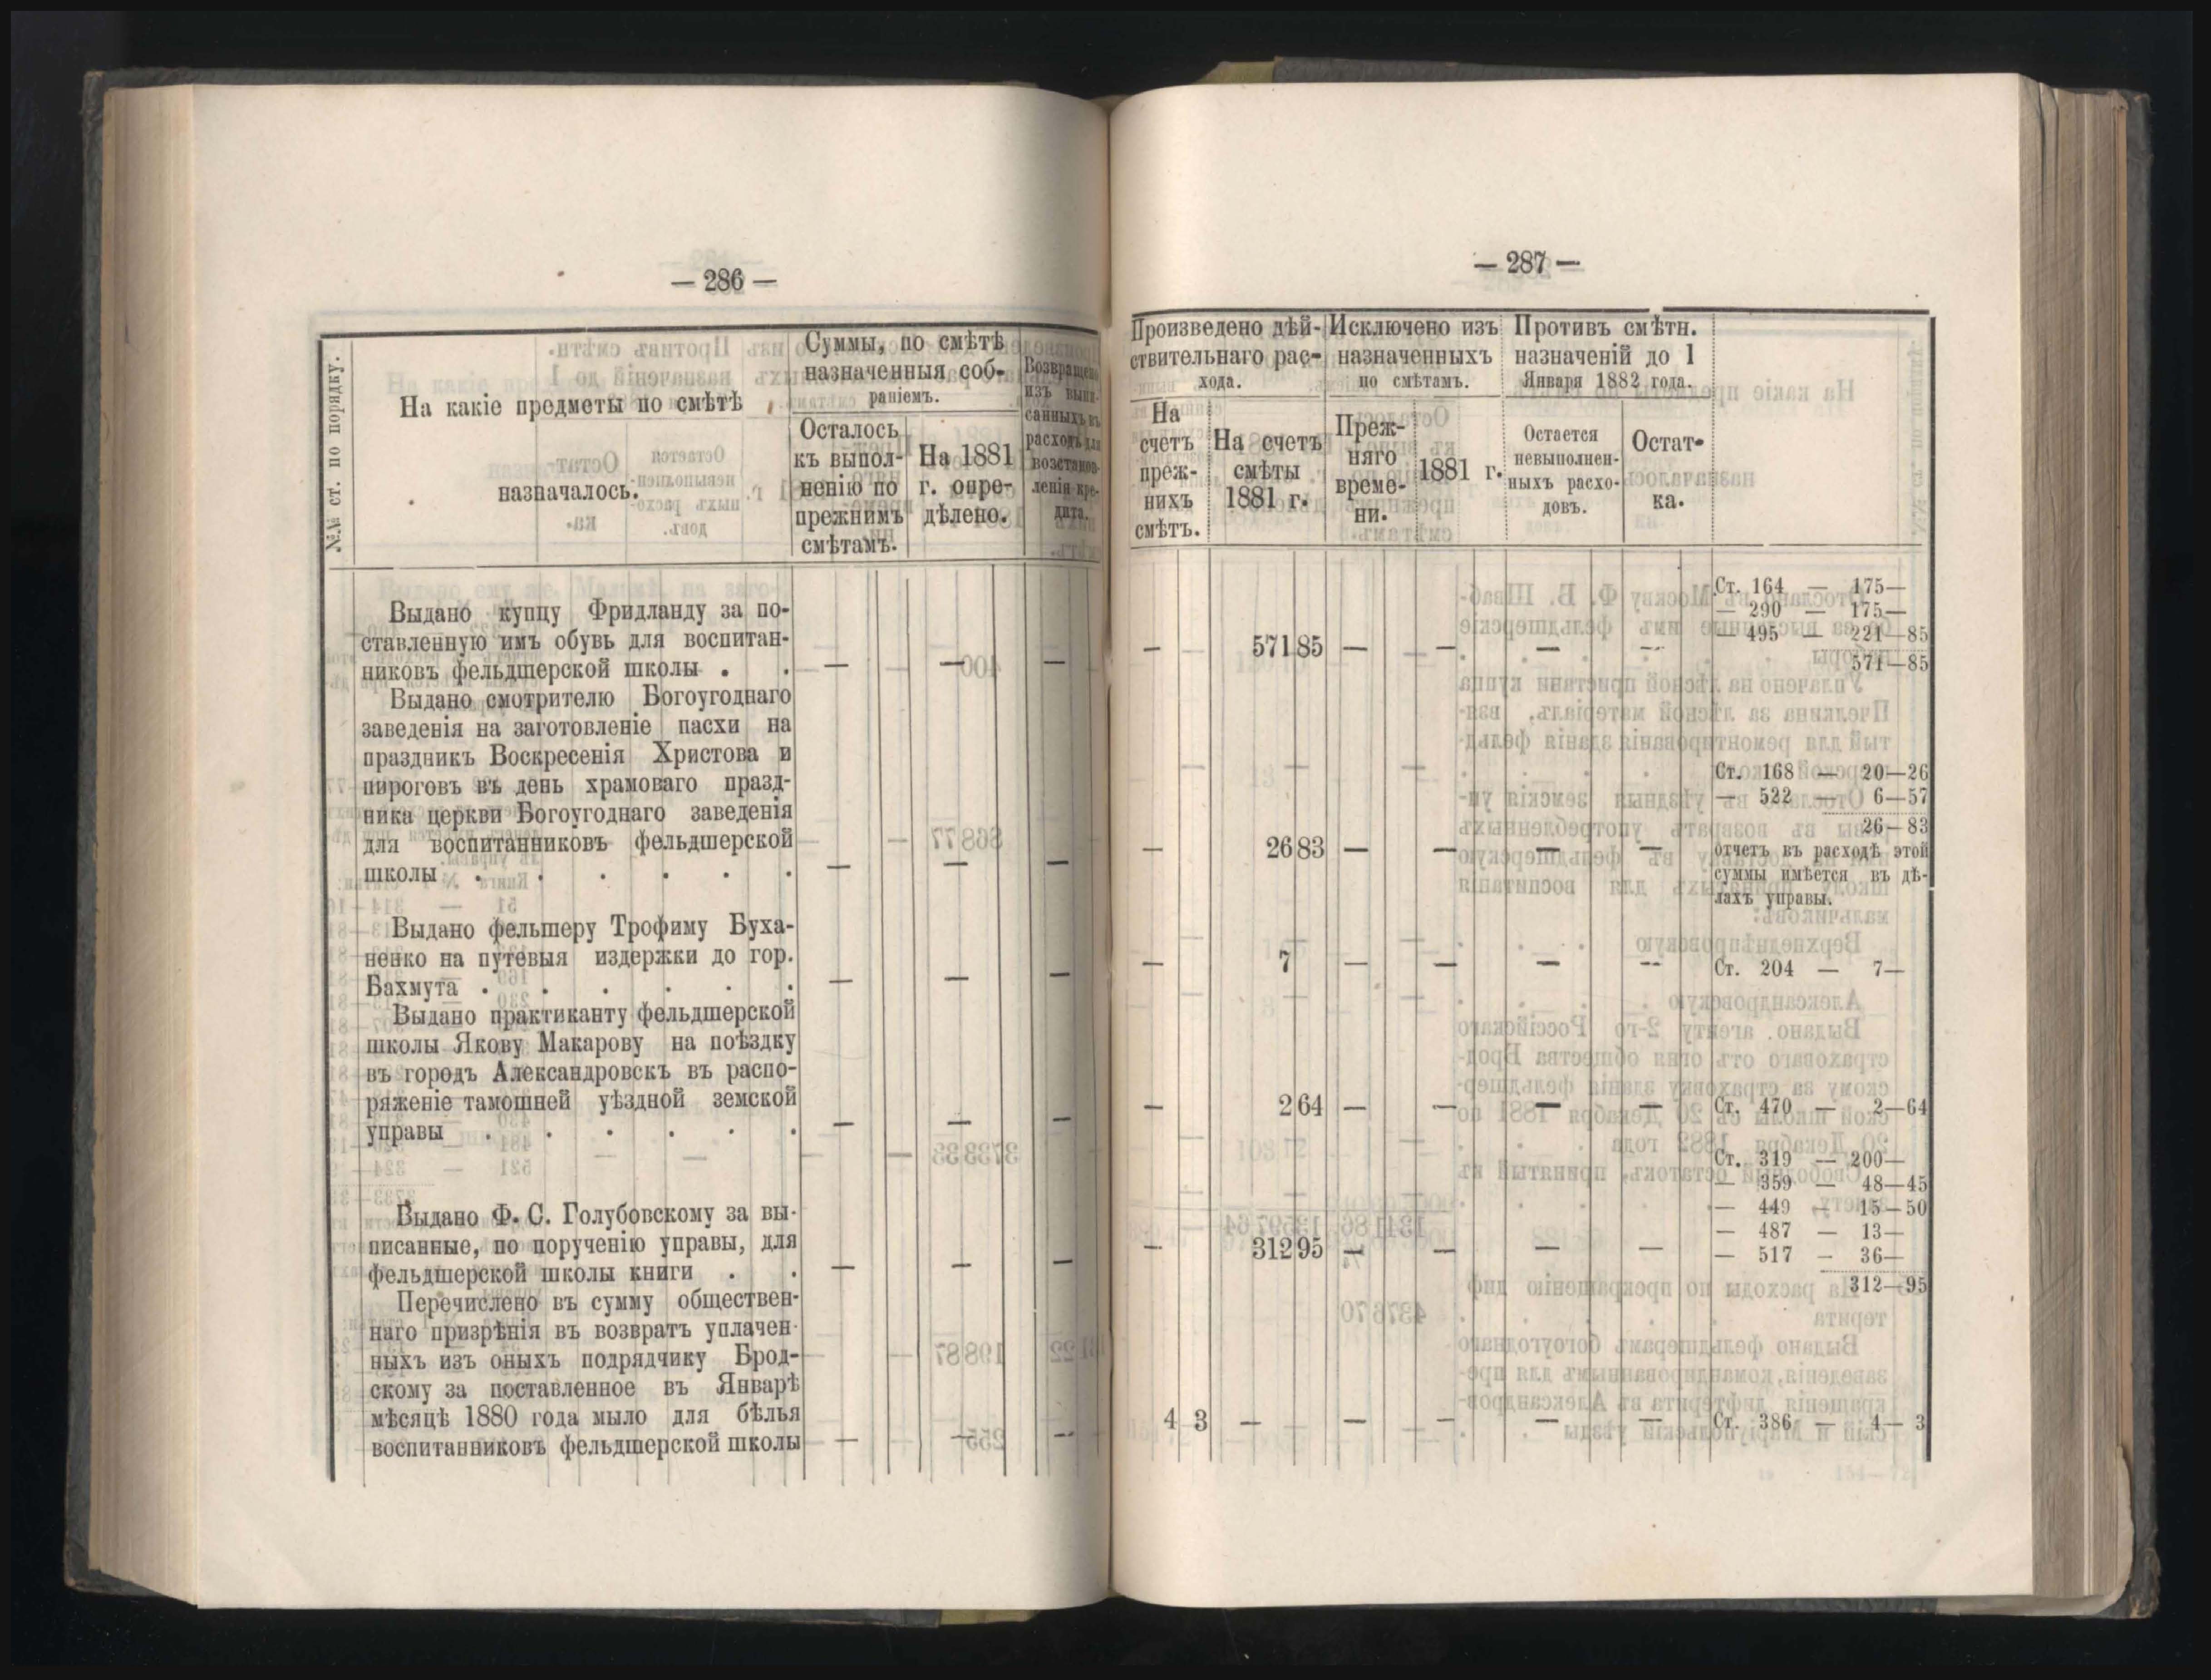 — 286 —
№№ ст. по порядку.
На какіе предметы по смѣтѣ
назначалось.
Суммы, по смѣтѣ
назначенныя соб-
раніемъ.
Осталось
къ выпол-
ненію по
прежнимъ
смѣтамъ.
На 1881
г. опре-
дѣлено.
Возвращено
изъ выпи-
санныхъ въ
расходъ для
возстанов-
ленія кре-
дита.
Выдано купцу Фридланду за по-
ставленную имъ обувь для воспитан-
никовъ фельдшерской школы . . — — —
Выдано смотрителю Богоугоднаго
заведенія на заготовленіе пасхи на
праздникъ Воскресенія Христова и
пироговъ въ день храмоваго празд-
ника церкви Богоугоднаго заведенія
для воспитанниковъ фельдшерской
школы . . . . . . — — —
Выдано фельшеру Трофиму Буха-
ненко на путевыя издержки до гор.
Бахмута . . . . . . — — —
Выдано практиканту фельдшерской
школы Якову Макарову на поѣздку
въ городъ Александровскъ въ распо-
ряженіе тамошней уѣздной земской
управы . . . . . . — — —
Выдано Ф. С. Голубовскому за вы-
писанные, по порученію управы, для
фельдшерской школы книги . . — — —
Перечислено въ сумму обществен-
наго призрѣнія въ возвратъ уплачен-
ныхъ изъ оныхъ подрядчику Брод-
скому за поставленное въ Январѣ
мѣсяцѣ 1880 года мыло для бѣлья
воспитанниковъ фельдшерской школы — — —
— 287 —
Произведено дѣй-
ствительнаго рас-
хода.
На
счетъ
преж-
нихъ
смѣтъ.
На счетъ
смѣты
1881 г.
Исключено изъ
назначенныхъ
по смѣтамъ.
Преж-
няго
време-
ни.
1881 г.
Противъ смѣтн.
назначеній до 1
Января 1882 года.
Остается
невыполнен-
ныхъ расхо-
довъ.
Остат-
ка.
Ст. 164 — 175—
— 290 — 175—
— 495 — 221—85
— 571 85 — — — —
571—85
Ст. 168 — 20—26
— 522 — 6—57
26—83
— 26 83 — — — — отчетъ въ расходѣ этой
суммы имѣется въ дѣ-
лахъ управы.
— 7 — — — — Ст. 204 — 7—
— 2 64 — — — — Ст. 470 — 2—64
Ст. 319 — 200—
— 359 — 48—45
— 449 — 15—50
— 487 — 13—
— 312 95 — — — — — 517 — 36—
312—95
4 3 — — — — — Ст. 386 — 4— 3